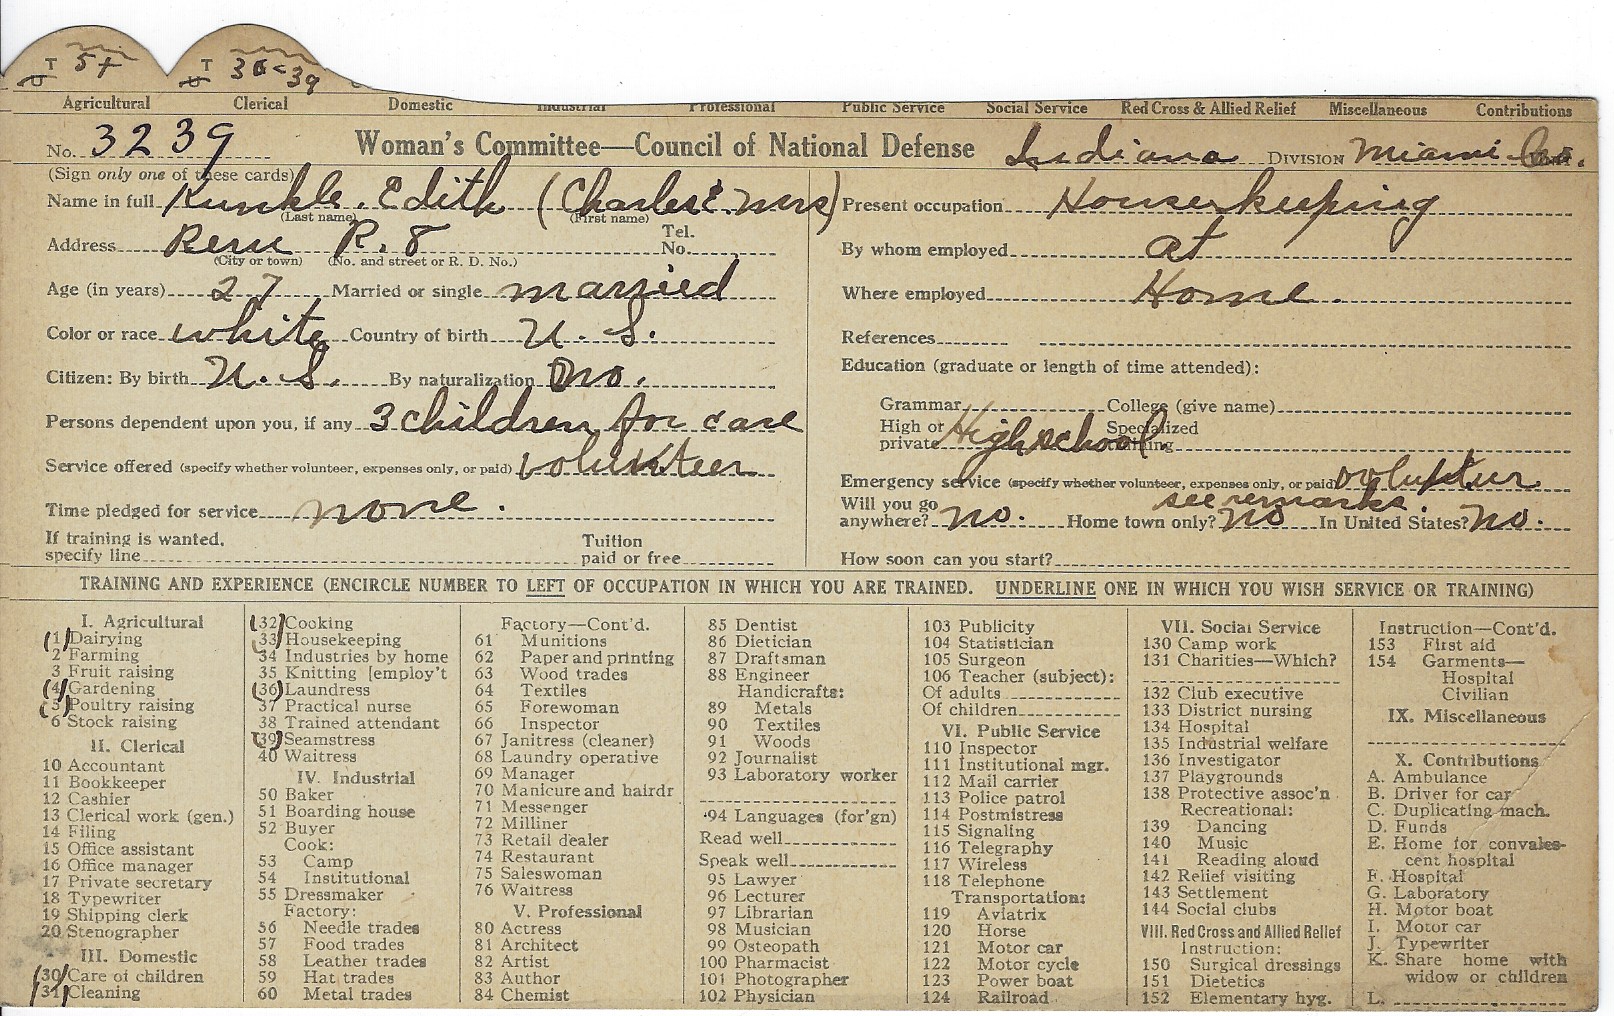 T 5+ T 36<39
Agricultural Clerical Domestic Industrial Professional Public Service Social Service Red Cross & Allied Relief Miscellaneous Contributions
No. 3239 Woman's Committee—Council of National Defense Indiana DIVISION Miami Co.
(Sign only one of these cards)
Name in full Kunkle, Edith (Charles E. Mrs) Present occupation Housekeeping
(Last name) (First name)
Address Peru R. 8 Tel. No. By whom employed at
(City or town) (No. and street or R. D. No.)
Age (in years) 27 Married or single married Where employed Home.
Color or race white Country of birth U. S. References
Citizen: By birth U. S. By naturalization no. Education (graduate or length of time attended):
Persons dependent upon you, if any 3 children for care Grammar College (give name)
High or private High school. Specialized training
Service offered (specify whether volunteer, expenses only, or paid) volunteer Emergency service (specify whether volunteer, expenses only, or paid) volunteer
see remarks.
Time pledged for service none. Will you go anywhere? no. Home town only? no In United States? no.
If training is wanted, specify line Tuition paid or free How soon can you start?
TRAINING AND EXPERIENCE (ENCIRCLE NUMBER TO LEFT OF OCCUPATION IN WHICH YOU ARE TRAINED. UNDERLINE ONE IN WHICH YOU WISH SERVICE OR TRAINING)
I. Agricultural
(1) Dairying
2 Farming
3 Fruit raising
(4) Gardening
(5) Poultry raising
6 Stock raising
II. Clerical
10 Accountant
11 Bookkeeper
12 Cashier
13 Clerical work (gen.)
14 Filing
15 Office assistant
16 Office manager
17 Private secretary
18 Typewriter
19 Shipping clerk
20 Stenographer
III. Domestic
(30) Care of children
(31) Cleaning
(32) Cooking
(33) Housekeeping
34 Industries by home
35 Knitting [employ't
(36) Laundress
37 Practical nurse
38 Trained attendant
(39) Seamstress
40 Waitress
IV. Industrial
50 Baker
51 Boarding house
52 Buyer
Cook:
53 Camp
54 Institutional
55 Dressmaker
Factory:
56 Needle trades
57 Food trades
58 Leather trades
59 Hat trades
60 Metal trades
Factory—Cont'd.
61 Munitions
62 Paper and printing
63 Wood trades
64 Textiles
65 Forewoman
66 Inspector
67 Janitress (cleaner)
68 Laundry operative
69 Manager
70 Manicure and hairdr
71 Messenger
72 Milliner
73 Retail dealer
74 Restaurant
75 Saleswoman
76 Waitress
V. Professional
80 Actress
81 Architect
82 Artist
83 Author
84 Chemist
85 Dentist
86 Dietician
87 Draftsman
88 Engineer
Handicrafts:
89 Metals
90 Textiles
91 Woods
92 Journalist
93 Laboratory worker
94 Languages (for'gn)
Read well
Speak well
95 Lawyer
96 Lecturer
97 Librarian
98 Musician
99 Osteopath
100 Pharmacist
101 Photographer
102 Physician
103 Publicity
104 Statistician
105 Surgeon
106 Teacher (subject):
Of adults
Of children
VI. Public Service
110 Inspector
111 Institutional mgr.
112 Mail carrier
113 Police patrol
114 Postmistress
115 Signaling
116 Telegraphy
117 Wireless
118 Telephone
Transportation:
119 Aviatrix
120 Horse
121 Motor car
122 Motor cycle
123 Power boat
124 Railroad
VII. Social Service
130 Camp work
131 Charities—Which?
132 Club executive
133 District nursing
134 Hospital
135 Industrial welfare
136 Investigator
137 Playgrounds
138 Protective assoc'n
Recreational:
139 Dancing
140 Music
141 Reading aloud
142 Relief visiting
143 Settlement
144 Social clubs
VIII. Red Cross and Allied Relief
Instruction:
150 Surgical dressings
151 Dietetics
152 Elementary hyg.
Instruction—Cont'd.
153 First aid
154 Garments—
Hospital
Civilian
IX. Miscellaneous
X. Contributions
A. Ambulance
B. Driver for car
C. Duplicating mach.
D. Funds
E. Home for convales-
cent hospital
F. Hospital
G. Laboratory
H. Motor boat
I. Motor car
J. Typewriter
K. Share home with
widow or children
L.